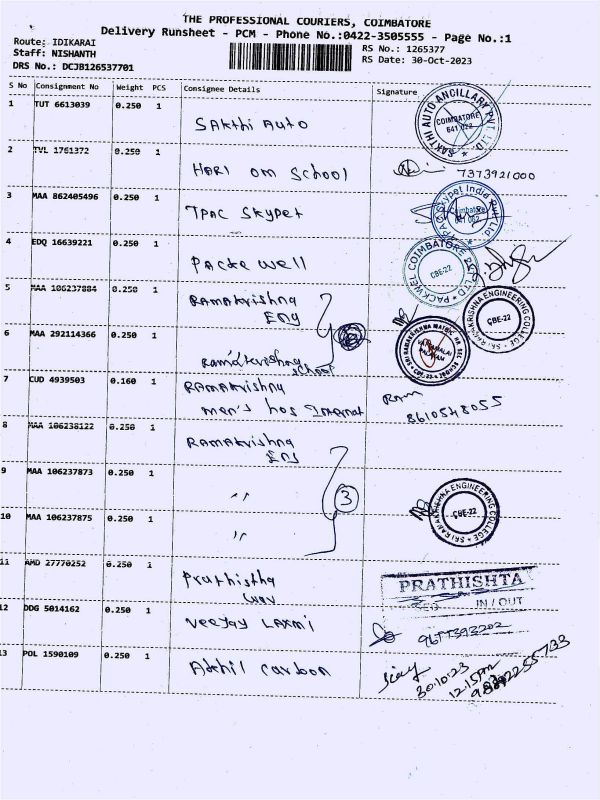 THE PROFESSIONAL COURIERS, COIMBATORE
Delivery Runsheet - PCM - Phone No.:0422-3505555 - Page No.:1
Route: IDIKARAI
RS No.: 1265377
Staff: NISHANTH
RS Date: 30-Oct-2023
DRS No.: DCJB126537701
S No Consignment No Weight PCS Consignee Details Signature
1 TUT 6613039 0.250 1 SAkthi Auto
SAKTHI AUTO ANCILLARY PVT LTD COIMBATORE 641 022
2 TVL 1761372 0.250 1 HARI om School 7373921000
3 MAA 862405496 0.250 1 TPAC Skypet
Skypet India Pvt. Ltd. Coimbatore
4 EDQ 16639221 0.250 1 Packe well
PACKWEL COIMBATORE CBE-22
5 MAA 106237884 0.250 1 RAMAkrishna
Eng
SRI RAMAKRISHNA ENGINEERING COLLEGE CBE-22
6 MAA 292114366 0.250 1 Ramakrishna
School
SRI RAMAKRISHNA MATRIC HR SEC SCHOOL
7 CUD 4939503 0.160 1 RAMAkrishna
men's hos 8610548055
8 MAA 106238122 0.250 1 RAMAkrishna
Eng
9 MAA 106237873 0.250 1 ,, 3
SRI RAMAKRISHNA ENGINEERING COLLEGE CBE-22
10 MAA 106237875 0.250 1 ,,
11 AMD 27770252 0.250 1 Prathistha
PRATHISHTA
IN / OUT
12 DDG 5014162 0.250 1 Veejay Laxmi
13 POL 1590109 0.250 1 Akhil Carbon
30.10.23
12.15Pm